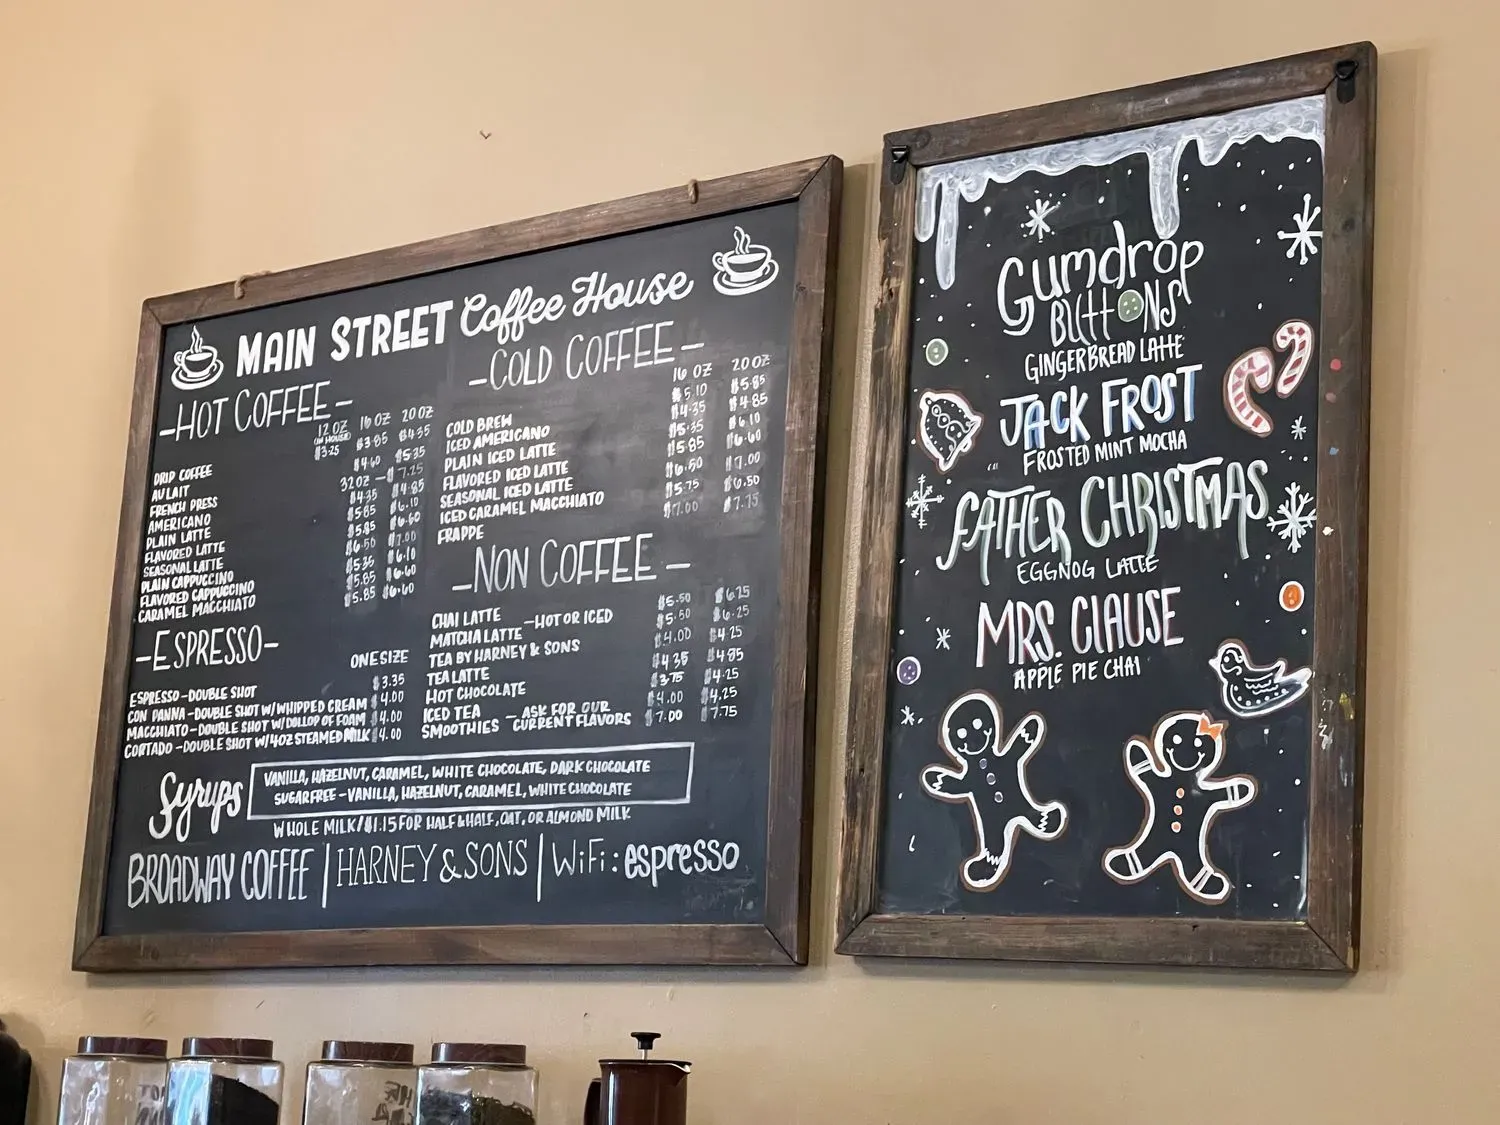 MAIN STREET Coffee House
-HOT COFFEE-
12 OZ 16 OZ 20 OZ
(IN HOUSE)
DRIP COFFEE $3.25 $3.85 $4.35
AU LAIT $4.60 $5.35
FRENCH PRESS 32 OZ — 7.25
AMERICANO $4.35 $4.85
PLAIN LATTE $5.35 $6.10
FLAVORED LATTE $5.85 $6.60
SEASONAL LATTE $6.50 $7.00
PLAIN CAPPUCCINO $5.35 $6.10
FLAVORED CAPPUCCINO $5.85 $6.60
CARAMEL MACCHIATO $5.85 $6.60
-ESPRESSO-
ONE SIZE
ESPRESSO-DOUBLE SHOT $3.35
CON PANNA-DOUBLE SHOT W/WHIPPED CREAM $4.00
MACCHIATO-DOUBLE SHOT W/DOLLOP OF FOAM $4.00
CORTADO-DOUBLE SHOT W/4OZ STEAMED MILK $4.00
-COLD COFFEE-
16 OZ 20 OZ
COLD BREW $5.10 $5.85
ICED AMERICANO $4.35 $4.85
PLAIN ICED LATTE $5.35 $6.10
FLAVORED ICED LATTE $5.85 $6.60
SEASONAL ICED LATTE $6.50 $7.00
ICED CARAMEL MACCHIATO $5.75 $6.50
FRAPPE $7.00 $7.75
-NON COFFEE-
CHAI LATTE $5.50 $6.25
MATCHA LATTE -HOT OR ICED $5.50 $6.25
TEA BY HARNEY & SONS $4.00 $4.25
TEA LATTE $4.35 $4.85
HOT CHOCOLATE $3.75 $4.25
ICED TEA $4.00 $4.25
SMOOTHIES - ASK FOR OUR CURRENT FLAVORS $7.00 $7.75
Syrups
VANILLA, HAZELNUT, CARAMEL, WHITE CHOCOLATE, DARK CHOCOLATE
SUGAR FREE-VANILLA, HAZELNUT, CARAMEL, WHITE CHOCOLATE
WHOLE MILK/$1.15 FOR HALF & HALF, OAT, OR ALMOND MILK
BROADWAY COFFEE | HARNEY & SONS | WiFi: espresso
Gumdrop
BUttONS
GINGERBREAD LATTE
JACK FROST
FROSTED MINT MOCHA
FATHER CHRISTMAS
EGGNOG LATTE
MRS. ClAUSE
APPLE PIE CHAI